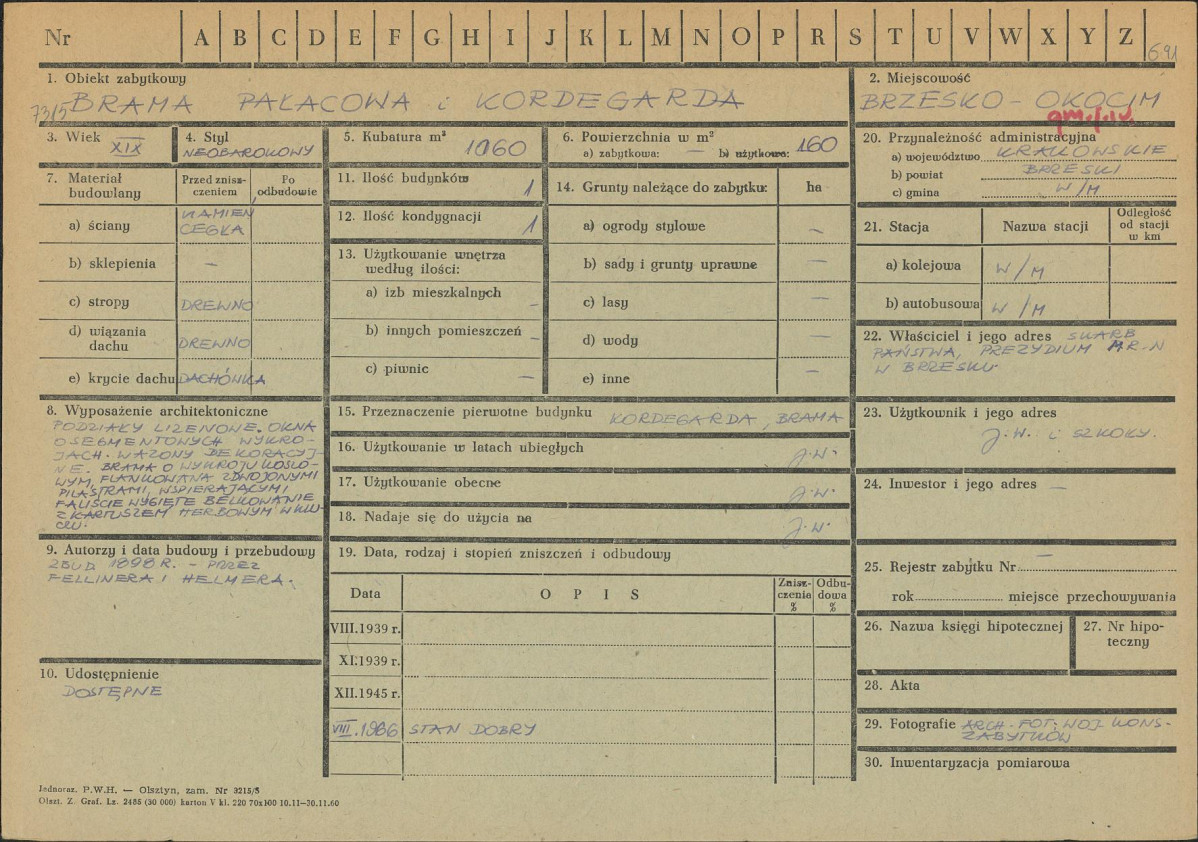 Nr A B C D E F G H I J K L M N O P R S T U V W X Y Z
1. Obiekt zabytkowy
73/5 BRAMA PAŁACOWA i KORDEGARDA
2. Miejscowość
BRZESKO - OKOCIM
3. Wiek XIX
4. Styl
NEOBAROKOWY
5. Kubatura m³ 1060
6. Powierzchnia w m²
a) zabytkowa: — b) użytkowa: 160
7. Materiał budowlany
Przed zniszczeniem
Po odbudowie
a) ściany KAMIEŃ, CEGŁA
b) sklepienia —
c) stropy DREWNO
d) wiązania dachu DREWNO
e) krycie dachu DACHÓWKA
8. Wyposażenie architektoniczne
PODZIAŁY LIZENOWE. OKNA
O SEGMENTOWYCH WYKRO-
JACH. WAZONY DEKORACYJ-
NE. BRAMA O WYKROJU KOSZO-
WYM, FLANKOWANA ZDWOJONYMI
PILASTRAMI, WSPIERAJĄCYMI
FALIŚCIE WYGIĘTE BELKOWANIE
Z KARTUSZEM HERBOWYM W KLU-
CZU.
9. Autorzy i data budowy i przebudowy
ZBUD 1898 R. - PRZEZ
FELLINERA I HELMERA.
10. Udostępnienie
DOSTĘPNE
11. Ilość budynków 1
12. Ilość kondygnacji 1
13. Użytkowanie wnętrza
według ilości:
a) izb mieszkalnych —
b) innych pomieszczeń —
c) piwnic —
14. Grunty należące do zabytku: ha
a) ogrody stylowe —
b) sady i grunty uprawne —
c) lasy —
d) wody —
e) inne —
15. Przeznaczenie pierwotne budynku KORDEGARDA, BRAMA
16. Użytkowanie w latach ubiegłych J.W.
17. Użytkowanie obecne J.W.
18. Nadaje się do użycia na J.W.
19. Data, rodzaj i stopień zniszczeń i odbudowy
Data
O P I S
Zniszczenia %
Odbudowa %
VIII.1939 r.
XI.1939 r.
XII.1945 r.
VIII.1966 STAN DOBRY
20. Przynależność administracyjna
a) województwo KRAKOWSKIE
b) powiat BRZESKI
c) gmina W/M
21. Stacja
Nazwa stacji
Odległość od stacji w km
a) kolejowa W/M
b) autobusowa W/M
22. Właściciel i jego adres SKARB
PAŃSTWA, PREZYDIUM M R-N
W BRZESKU.
23. Użytkownik i jego adres
J.W. i SZKOŁY.
24. Inwestor i jego adres —
25. Rejestr zabytku Nr —
rok miejsce przechowywania
26. Nazwa księgi hipotecznej
27. Nr hipo-
teczny
28. Akta
29. Fotografie ARCH. FOT. WOJ KONS-
ZABYTKÓW
30. Inwentaryzacja pomiarowa
Jednoraz. P.W.H. — Olsztyn, zam. Nr 3215/S
Olszt. Z. Graf. Lz. 2485 (30 000) karton V kl. 220 70x100 10.11—30.11.60